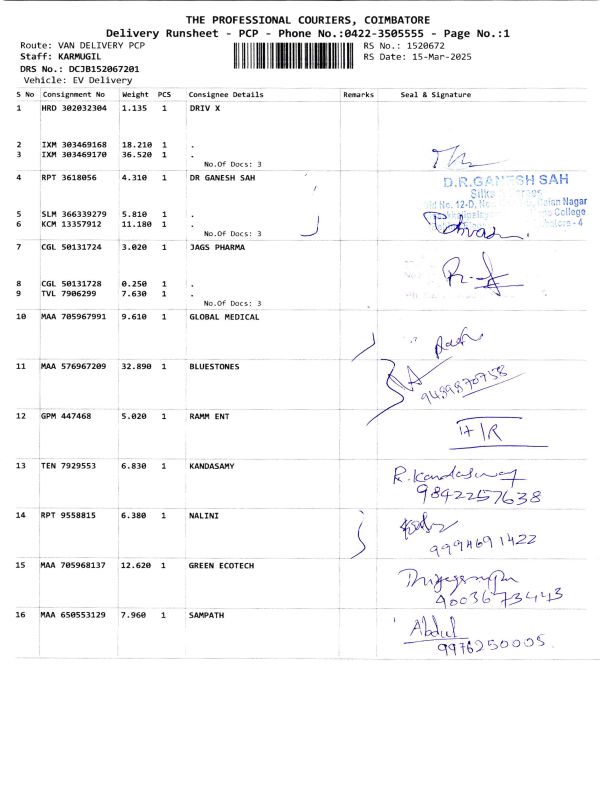 THE PROFESSIONAL COURIERS, COIMBATORE
Delivery Runsheet - PCP - Phone No.:0422-3505555 - Page No.:1
Route: VAN DELIVERY PCP RS No.: 1520672
Staff: KARMUGIL RS Date: 15-Mar-2025
DRS No.: DCJB152067201
Vehicle: EV Delivery
S No Consignment No Weight PCS Consignee Details Remarks Seal & Signature
1 HRD 302032304 1.135 1 DRIV X
2 IXM 303469168 18.210 1 .
3 IXM 303469170 36.520 1 .
No.Of Docs: 3
4 RPT 3618056 4.310 1 DR GANESH SAH
D.R.GANESH SAH
5 SLM 366339279 5.810 1 .
6 KCM 13357912 11.180 1 .
No.Of Docs: 3
7 CGL 50131724 3.020 1 JAGS PHARMA
8 CGL 50131728 0.250 1 .
9 TVL 7906299 7.630 1 .
No.Of Docs: 3
10 MAA 705967991 9.610 1 GLOBAL MEDICAL
11 MAA 576967209 32.890 1 BLUESTONES
9489870958
12 GPM 447468 5.020 1 RAMM ENT
13 TEN 7929553 6.830 1 KANDASAMY
R. Kandasway
9842257638
14 RPT 9558815 6.380 1 NALINI
9994691422
15 MAA 705968137 12.620 1 GREEN ECOTECH
9003673443
16 MAA 650553129 7.960 1 SAMPATH
Abdul
9976250005